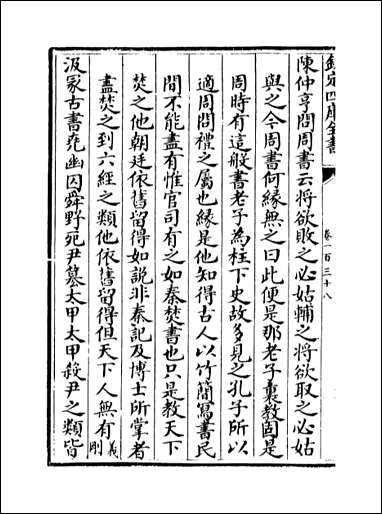 欽定四庫全書
卷一百三十八
陳仲亨問周書云将欲敗之必姑輔之将欲取之必姑
與之今周書何縁無之曰此便是那老子裏教固是
周時有這般書老子為柱下史故多見之孔子所以
適周問禮之屬也縁是他知得古人以竹簡寫書民
間不能盡有惟官司有之如秦焚書也只是教天下
焚之他朝廷依舊留得如説非秦記及博士所掌者
盡焚之到六經之類他依舊留得但天下人無有義剛
汲冢古書堯幽囚舜野死尹簒太甲太甲殺尹之類皆